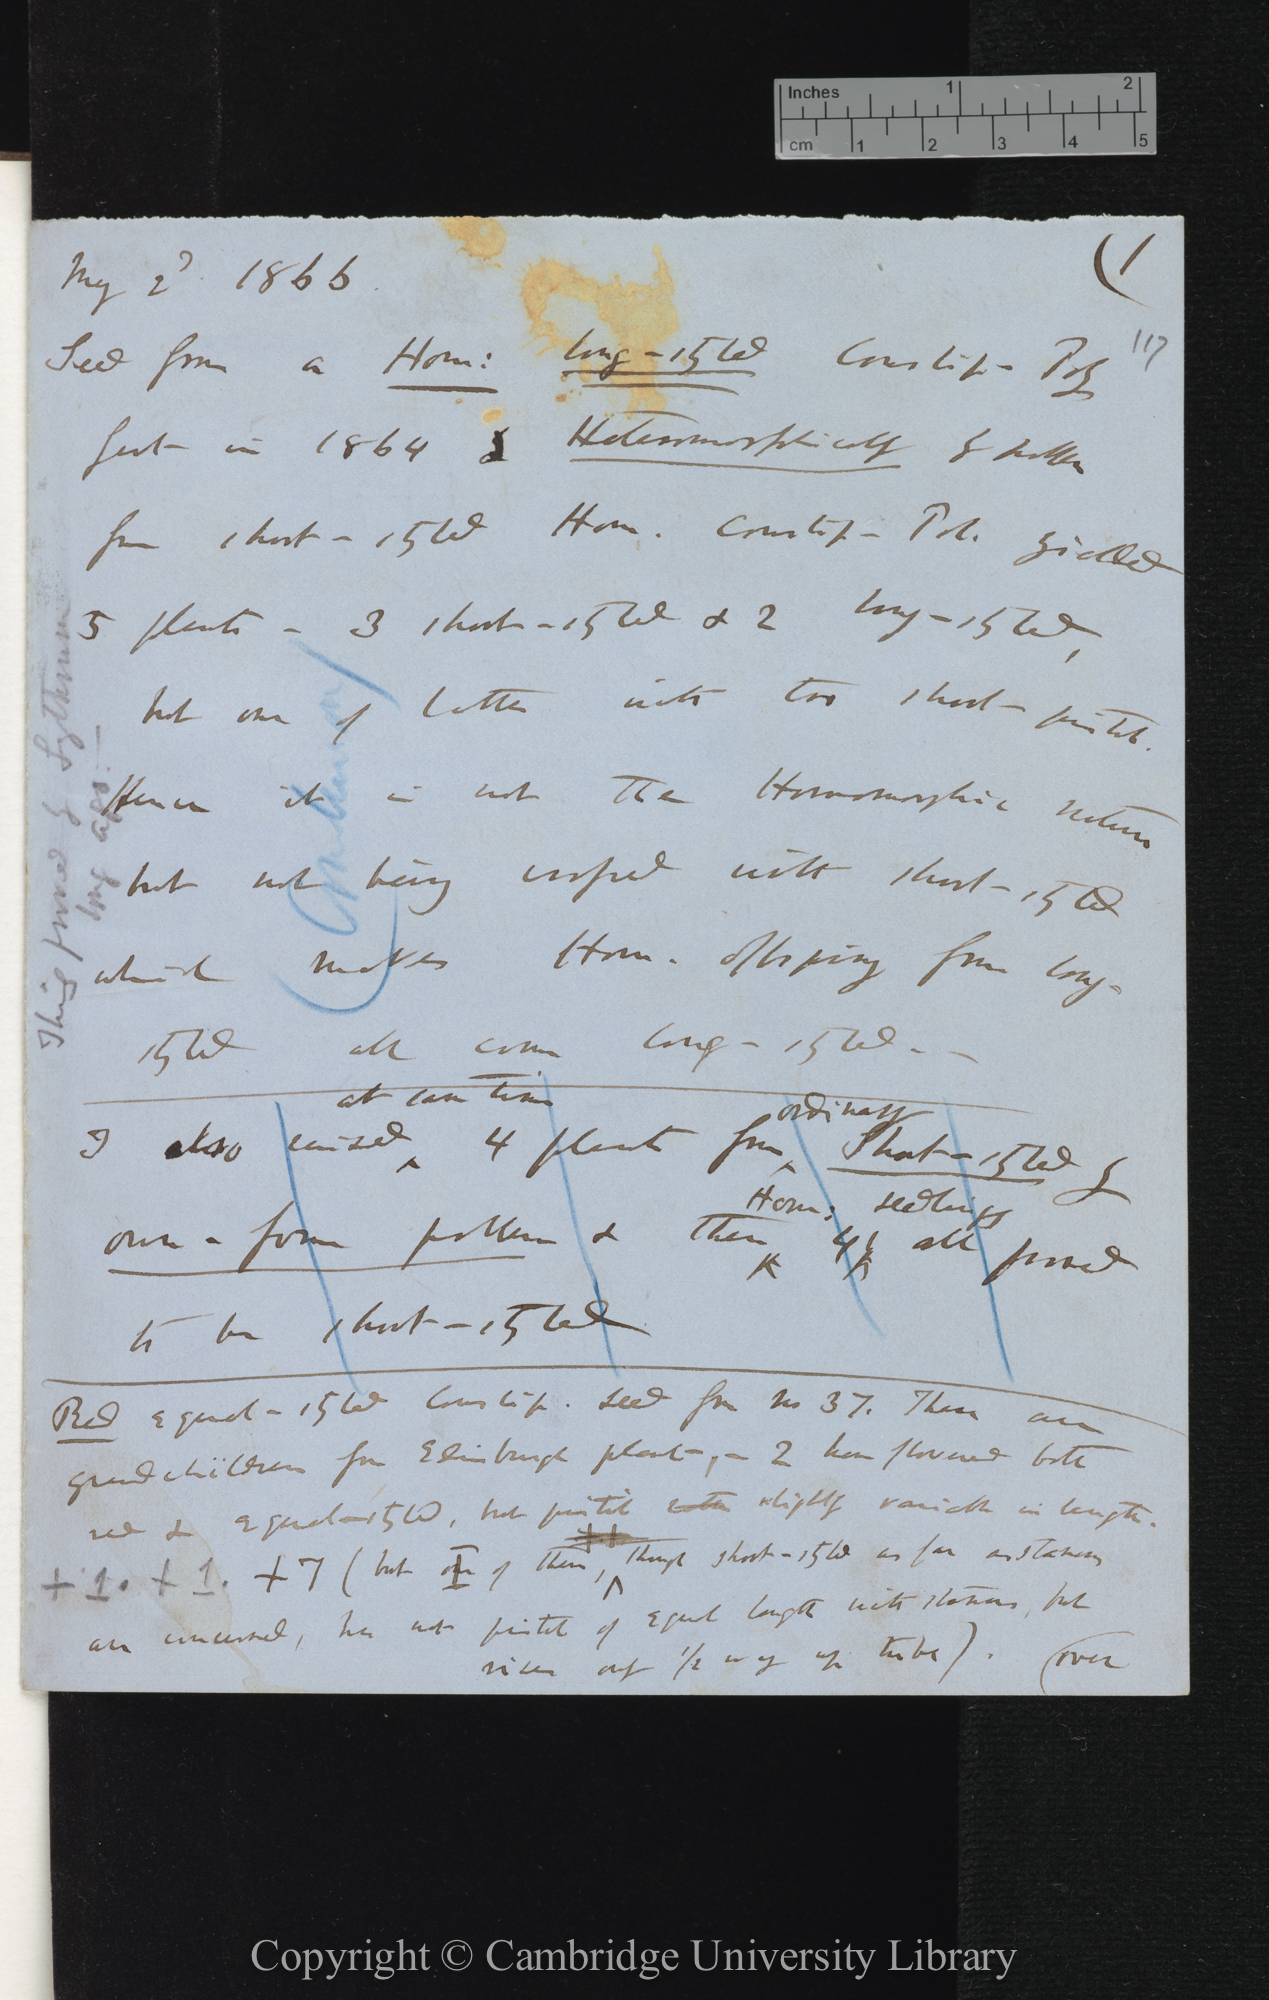 Inches 1 2
cm 1 2 3 4 5
(1
May 2d. 1866.
117
Seed from a Hom: long-styled Cowslip - Poly
fert in 1864 Heteromorphically by pollen
from short-styled Hom. Cowslip - Pol. yielded
5 plants - 3 short-styled & 2 long-styled,
but one of latter with too short-pistil.
Hence it is not the Homomorphic nature
but not being crossed with short-styled
which makes Hom. offspring from long-
styled all come long-styled.-
This proved by Lythrum
long ago:-
at same time ordinary
I also raised 4 plants from Short-styled by
Hom: seedlings
own-form pollen & these 4 all proved
to be short-styled
Red equal-styled Cowslip. seed from no 37. These are
grandchildren from Edinburgh plant,- 2 have flowered both
red & equal-styled, but pistil slightly variable in length.
+1. +1. +7 (but one of them, though short-styled as far as stamens
are concerned, has not pistil of equal length with stamens, but
rises only 1/2 way up tube). (over
Copyright © Cambridge University Library